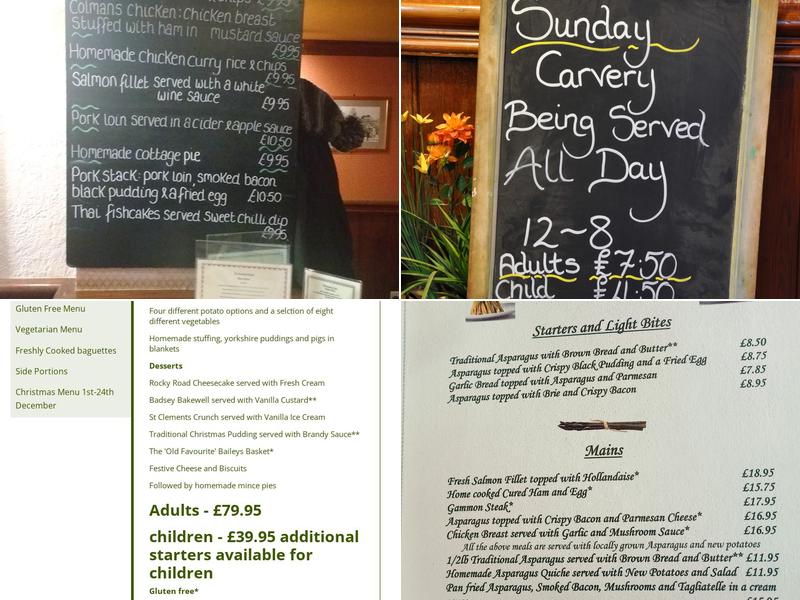 Colmans chicken: Chicken breast
stuffed with ham in mustard sauce
£9.95
Homemade chicken curry rice & chips
£9.95
Salmon fillet served with a white
wine sauce £9.95
Pork loin served in a cider & apple sauce
£10.50
Homemade cottage pie £9.95
Pork stack: pork loin, smoked bacon
black pudding & a fried egg £10.50
Thai fishcakes served sweet chilli dip
£9.95
Sunday
Carvery
Being Served
All Day
12~8
Adults £7:50
Child £4:50
Gluten Free Menu
Vegetarian Menu
Freshly Cooked baguettes
Side Portions
Christmas Menu 1st-24th
December
Four different potato options and a selction of eight
different vegetables
Homemade stuffing, yorkshire puddings and pigs in
blankets
Desserts
Rocky Road Cheesecake served with Fresh Cream
Badsey Bakewell served with Vanilla Custard**
St Clements Crunch served with Vanilla Ice Cream
Traditional Christmas Pudding served with Brandy Sauce**
The 'Old Favourite' Baileys Basket*
Festive Cheese and Biscuits
Followed by homemade mince pies
Adults - £79.95
children - £39.95 additional
starters available for
children
Gluten free*
Starters and Light Bites
Traditional Asparagus with Brown Bread and Butter** £8.50
Asparagus topped with Crispy Black Pudding and a Fried Egg £8.75
Garlic Bread topped with Asparagus and Parmesan £7.85
Asparagus topped with Brie and Crispy Bacon £8.95
Mains
Fresh Salmon Fillet topped with Hollandaise* £18.95
Home cooked Cured Ham and Egg* £15.75
Gammon Steak* £17.95
Asparagus topped with Crispy Bacon and Parmesan Cheese* £16.95
Chicken Breast served with Garlic and Mushroom Sauce* £16.95
All the above meals are served with locally grown Asparagus and new potatoes
1/2lb Traditional Asparagus served with Brown Bread and Butter** £11.95
Homemade Asparagus Quiche served with New Potatoes and Salad £11.95
Pan fried Asparagus, Smoked Bacon, Mushrooms and Tagliatelle in a cream